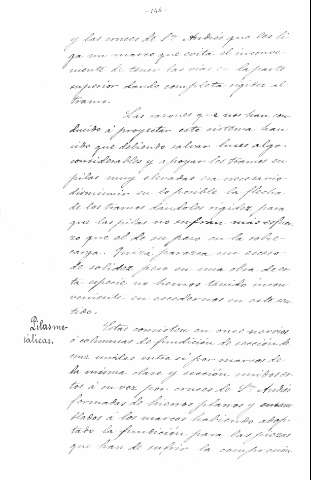 -146-
y las cruces de Sn. Andrés que les li
ga un marco que evita el inconve-
niente de tener las vias en la parte
superior dando completa rigidez al
tramo.
Las razones que nos han con
ducido á proyectar este sistema han
sido que debiendo salvar luces algo
considerables y apoyar los tramos en
pilas muy elevadas era necesario
disminuir en lo posible la flecha
de los tramos dándoles rigidez para
que las pilas no sufran más esfuer
zo que el de su peso en la sobre-
carga. Quizá parezca un exceso
de solidez pero en una obra de es-
ta especie no hemos tenido incon-
veniente en excedernos en este sen
tido.
Pilas me-
tálicas.
Estas consisten en once
ó columnas de fundición de sección de
cruz unidas entre sí por marcos de
la misma clase y sección unidos es-
tos á su vez por cruces de Sn. Andrés
formadas de hierros planos y
blados á los marcos habiendo adop-
tado la fundición para las piezas
que han de sufrir la compresión